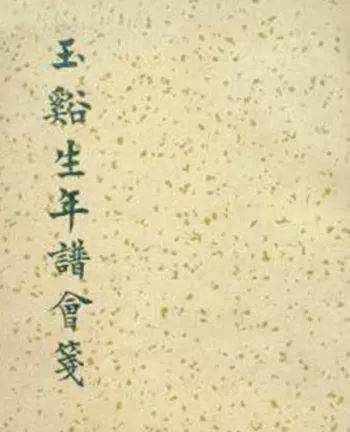 玉谿生年譜會箋